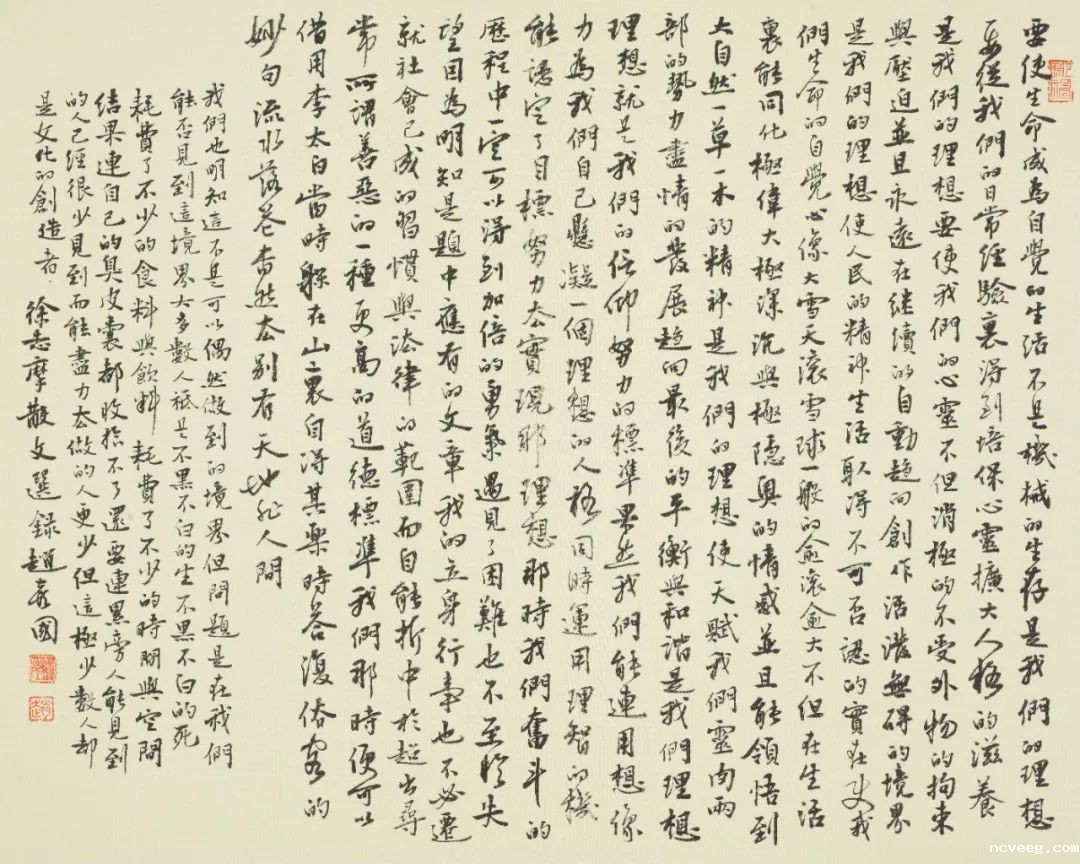 要使生命成為自覺的生活不是機械的生存是我們的理想
要從我們的日常經驗裏得到培保心靈擴大人格的滋養
是我們的理想要使我們的心靈不但消極的不受外物的拘束
與壓迫並且永遠在繼續的自動趨向創作活潑無碍的境界
是我們的理想使人民的精神生活取得不可否認的實在使我
們生命的自覺心像大雪天滚雪球一般的愈滚愈大不但在生活
裏能同化極偉大極深沉與極隱奧的情感並且能領悟到
大自然一草一木的精神是我們的理想使天賦我們靈肉兩
部的勢力盡情的發展趨向最後的平衡與和諧是我們理想
理想就是我們的信仰努力的標準果然我們能連用想像
力為我們自己懸凝一個理想的人格同時運用理智的機
能認定了目標努力去實現那理想那時我們奮斗的
歷程中一定可以得到加倍的勇氣遇見了困難也不至於失
望因為明知是題中應有的文章我的立身行事也不必遷
就社會已成的習慣與法律的範圍而自能折中於超出尋
常所謂善惡的一種更高的道德標準我們那時便可以
借用李太白當時躲在山裏自得其樂時答復俗客的
妙句流水落花杳然去別有天地非人間
我們也明知這不是可以偶然做到的境界但問題是在我們
能否見到這境界大多數人祗是不黑不白的生不黑不白的死
耗費了不少的食料與飲料耗費了不少的時間與空間
結果連自己的臭皮囊都收拾不了還要連累旁人能見到
的人已經很少見到而能盡力去做的人更少但這極少數人却
是文化的創造者 徐志摩散文選錄 趙國
ncveeg.com